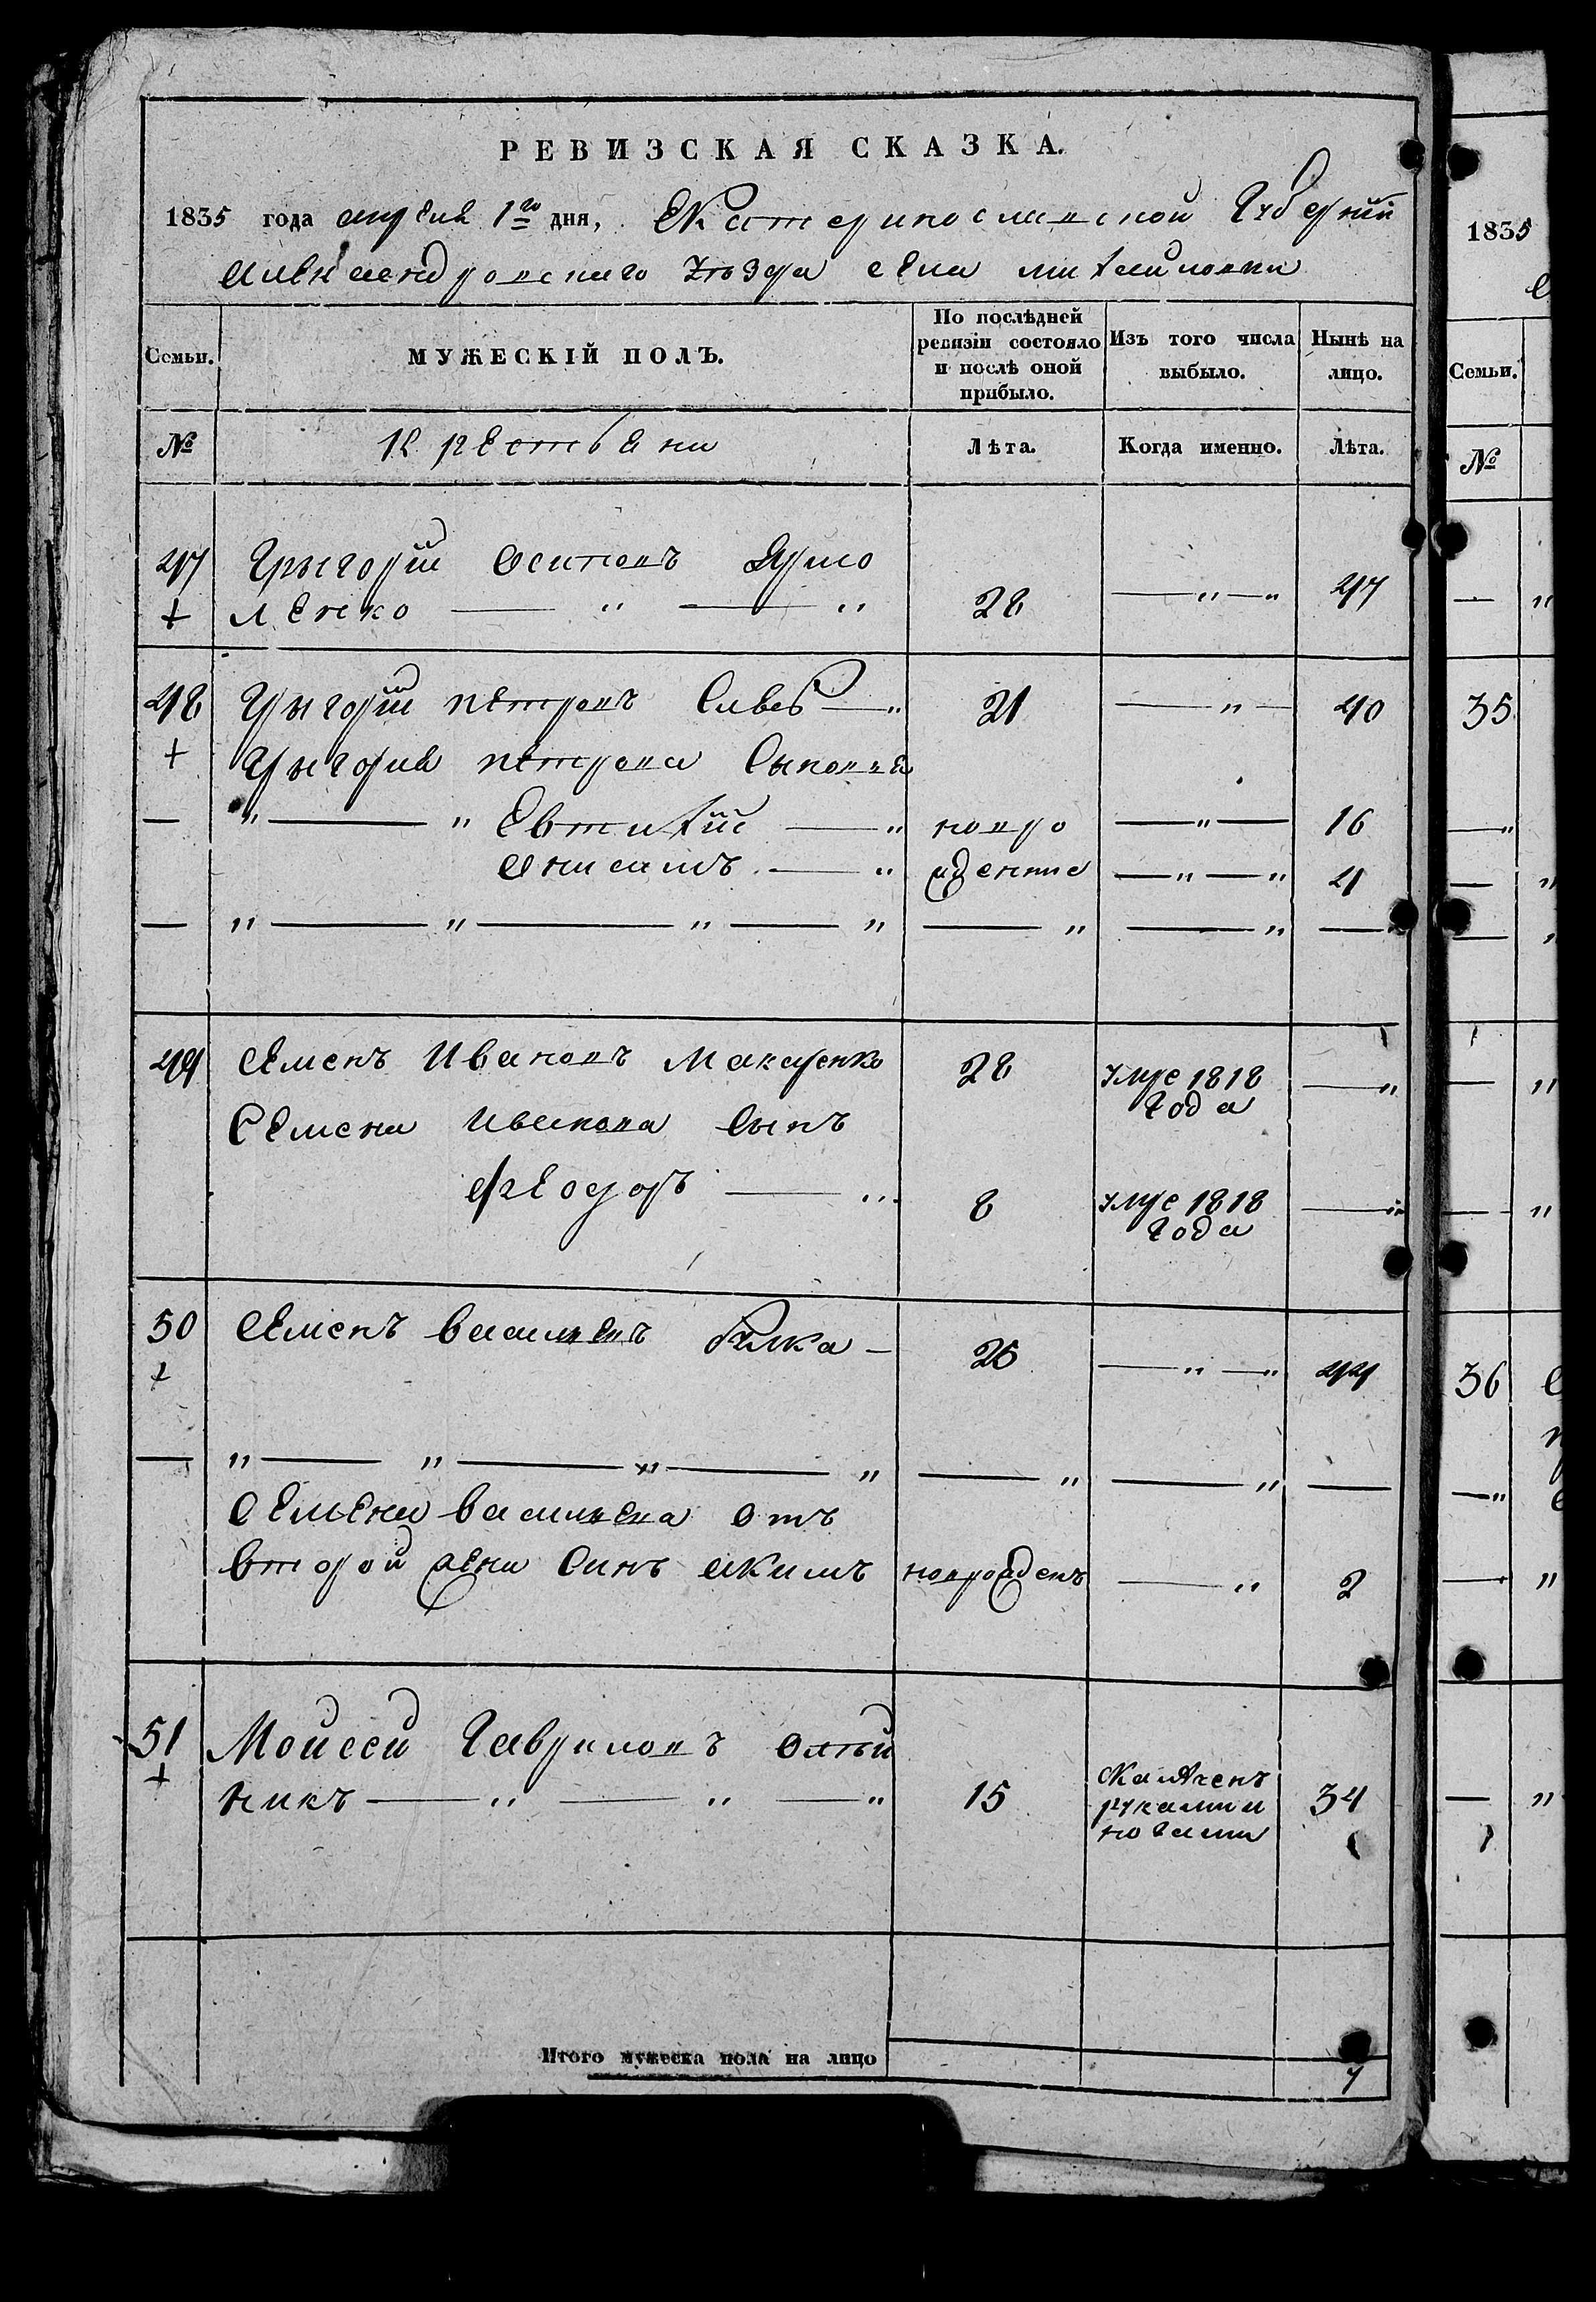 РЕВИЗСКАЯ СКАЗКА.
1835 года апреля 1го дня, Екатеринославской Губернии
Александровского уезда села михайловки
Семьи. МУЖЕСКІЙ ПОЛЪ. По послѣдней ревизіи состояло и послѣ оной прибыло. Изъ того числа выбыло. Нынѣ на лицо.
№ Крестьяни Лѣта. Когда именно. Лѣта.
47 Грыгорій Осиповъ Ярмо
+ ленко — " — " 28 — " — " 47
48 Грыгорій петровъ — " 21 — " — 40
+ Грыгория петрова Сыновья
— " — " Евтихій — " новро — " — 16
Анисимъ — " жденние — " — " 4
— " — " — " — " — " — " —
49 Семенъ Ивановъ Макаренко 28 умре 1818 — "
года
Семена иванова сынъ
федоръ — " 8 умре 1818 — "
года
50 Семенъ васильевъ Билка — 25 — " — " 44
+
— " — " — " — " — " — " —
Семена васильева отъ
второй жени синъ акимъ новрожденъ — " 2
51 Моисей Гавриловъ Олей
+ никъ — " — " — " 15 Калеченъ 34
руками и
ногами
Итого мужеска пола на лицо 7
1835
Семьи.
№
— "
35
— "
— "
— "
— "
— "
36
— "
— "
— "